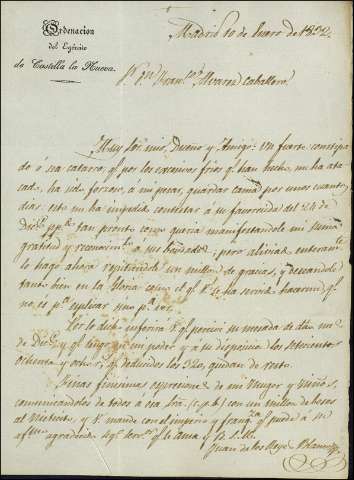 Ordenacion
del Egército
de Castilla la Nueva.
Madrid 10 de Enero de 1832.
Sr. Dn. Franco. Alvarez Caballero
Muy Sor. mio, Dueño y Amigo: Un fuerte constipa
do ó sea catarro qe. por los excesivos frios qe. han hecho, me ha ata-
cado, ha sido forzoso, á mi pesar, guardar cama por unos cuantos
dias: esto me ha impedido contestar á su favorecida del 24 de
Dice. pp. tan pronto como queria manifestandole mi suma
gratitud y reconocimto. á sus bondades; pero aliviado enteramte.
lo hago ahora repitiendole un millon de gracias, y deseandole
tanto bien en la como el qe. V. se ha servido hacerme qe.
no es pa. esplicar sino pa.
Por lo dicho inferirá V. qe. percivi su mesada de
de Dice. y qe. tengo en mi poder y á su disposicion los setecientos
ochenta y ocho rs. qe. deducidos los 320, quedan de resto.
finisimas expresiones de mi Muger y Niños,
comunicandolos de todos á esa Sra. (c.p.b.) con un millon de besos
al Nietecito, y V. mande con el imperio y franqza. qe. puede á su
afmo. agradecido sego. servr. qe. le ama y B. S. M.
Juan de los Reyes